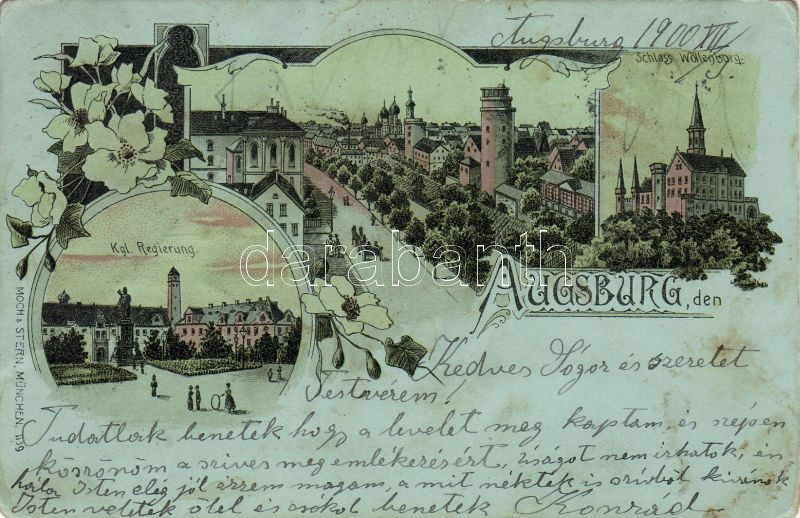 Augsburg 1900 VIII/9
Schloss Wöllenburg.
Kgl. Regierung.
darabanth
AUGSBURG, den
MOCH & STERN, MÜNCHEN. 1139
Kedves Sógor és szeretet
Testvérem!
Tudatlak benetek hogy a levelet meg kaptam, és szépen
köszönöm a szives meg emlékezésért, ujságot nem irhatok, én
hála Isten elég jól érzem magam, a mit néktek is szivből kivánok
Isten veletek ölel és csókol benetek Konrád